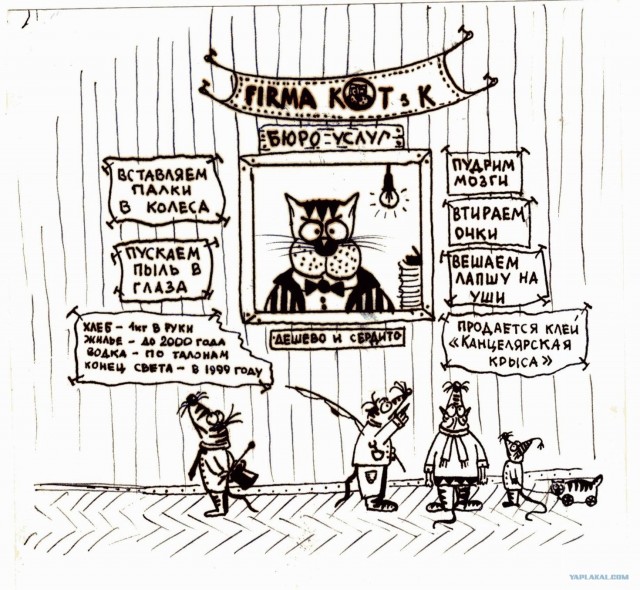 FIRMA KOT & K
БЮРО УСЛУГ
ВСТАВЛЯЕМ
ПАЛКИ
В КОЛЕСА
ПУСКАЕМ
ПЫЛЬ В
ГЛАЗА
ХЛЕБ - 1КГ В РУКИ
ЖИЛЬЕ - ДО 2000 ГОДА
ВОДКА - ПО ТАЛОНАМ
КОНЕЦ СВЕТА - В 1999 ГОДУ
ДЕШЕВО И СЕРДИТО
ПУДРИМ
МОЗГИ
ВТИРАЕМ
ОЧКИ
ВЕШАЕМ
ЛАПШУ НА
УШИ
ПРОДАЕТСЯ КЛЕЙ
«КАНЦЕЛЯРСКАЯ
КРЫСА»
YAPLAKAL.COM